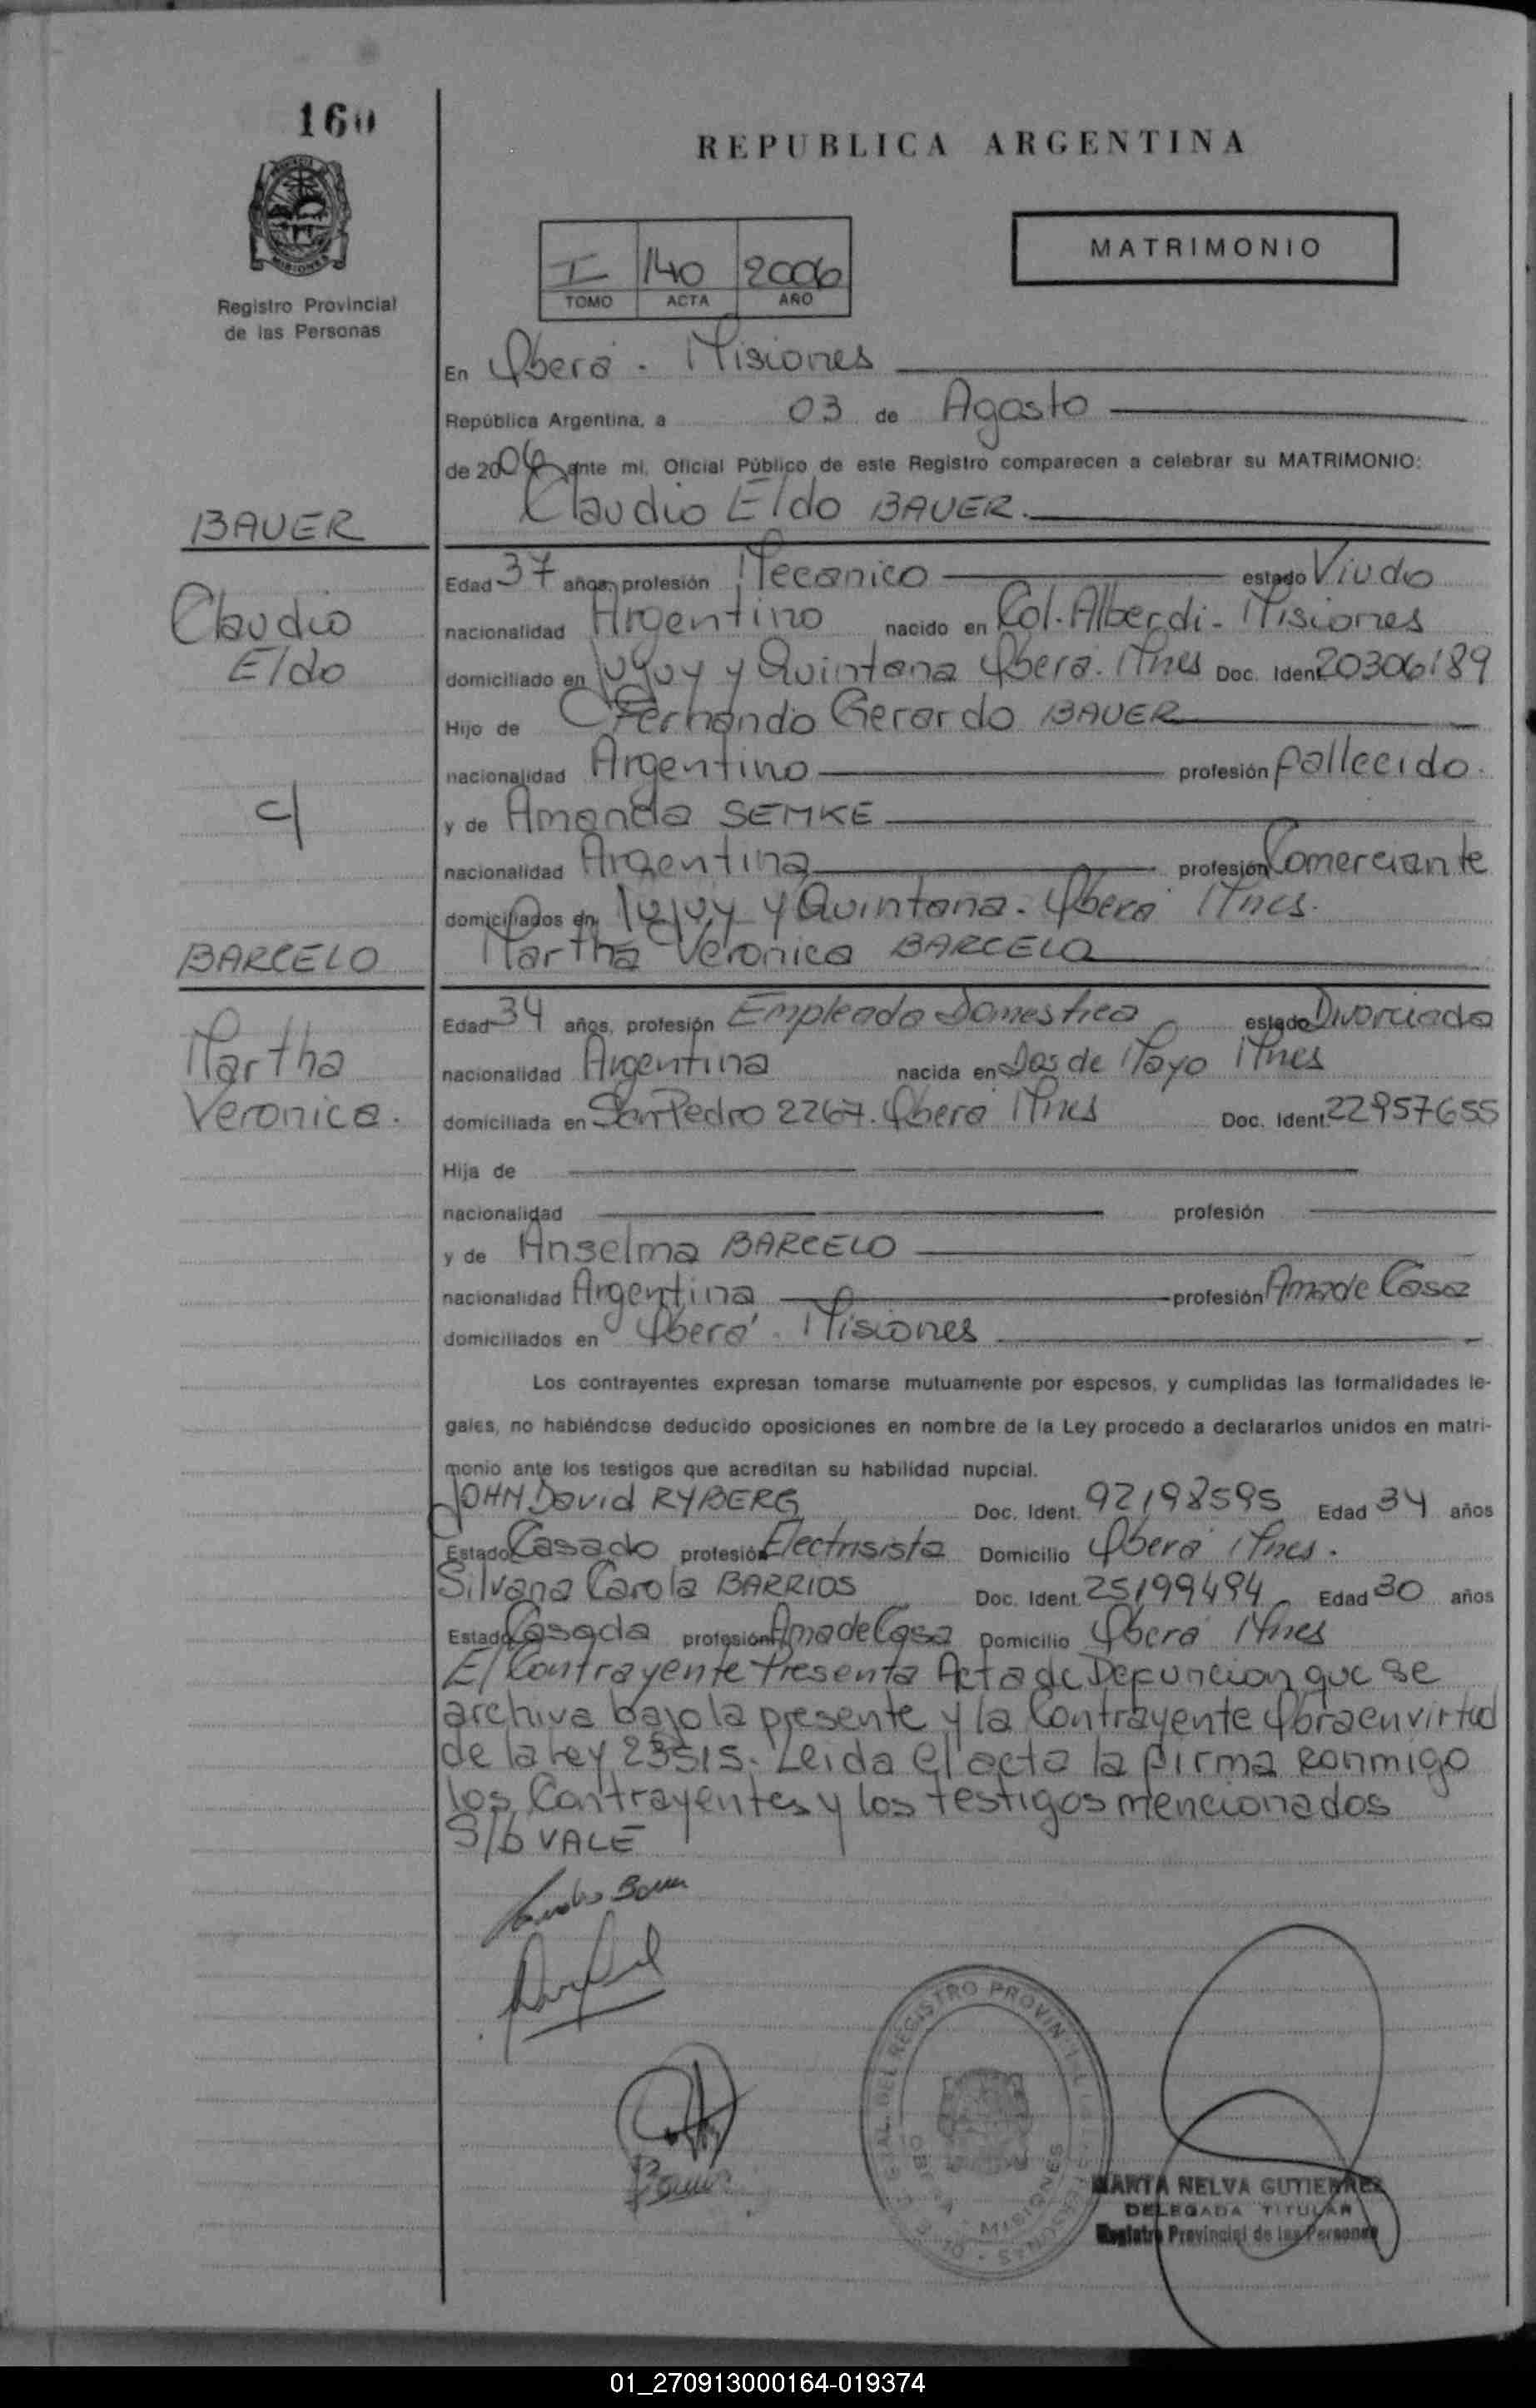 160
REPUBLICA ARGENTINA
MATRIMONIO
I 140 2006
TOMO ACTA AÑO
Registro Provincial
de las Personas
En Oberá - Misiones
República Argentina, a 03 de Agosto
de 2006 ante mi, Oficial Público de este Registro comparecen a celebrar su MATRIMONIO:
Claudio Eldo BAUER.
BAUER
Claudio
Eldo
c/
Edad 37 años, profesión Mecanico estado Viudo
nacionalidad Argentino nacido en Col. Alberdi - Misiones
domiciliado en Jujuy y Quintana Oberá. Mnes Doc. Ident. 20306189
Hijo de Fernando Gerardo BAUER
nacionalidad Argentino profesión fallecido.
y de Amanda SEMKE
nacionalidad Argentina profesión Comerciante
domiciliados en Jujuy y Quintana. Oberá Mnes.
Martha Veronica BARCELO
BARCELO
Martha
Veronica.
Edad 34 años, profesión Empleada Domestica estado Divorciada
nacionalidad Argentina nacida en Dos de Mayo Mnes
domiciliada en San Pedro 2267. Oberá Mnes Doc. Ident. 22957655
Hija de
nacionalidad profesión
y de Anselma BARCELO
nacionalidad Argentina profesión Ama de Casa
domiciliados en Oberá - Misiones
Los contrayentes expresan tomarse mutuamente por esposos, y cumplidas las formalidades le-
gales, no habiéndose deducido oposiciones en nombre de la Ley procedo a declararlos unidos en matri-
monio ante los testigos que acreditan su habilidad nupcial.
JOHN David RYBERG Doc. Ident. 92198595 Edad 34 años
Estado Casado profesión Electrisista Domicilio Oberá Mnes.
Silvana Carola BARRIOS Doc. Ident. 25199494 Edad 30 años
Estado Casada profesión Ama de Casa Domicilio Oberá Mnes
El Contrayente Presenta Acta de Defuncion que se
archiva bajo la presente y la Contrayente Obra en virtud
de la Ley 23515. Leida el acta la firma conmigo
los Contrayentes y los testigos mencionados
S/b VALE
REGISTRO PROVINCIAL
MISIONES
MARTA NELVA GUTIERREZ
DELEGADA TITULAR
Registro Provincial de las Personas
01_270913000164-019374